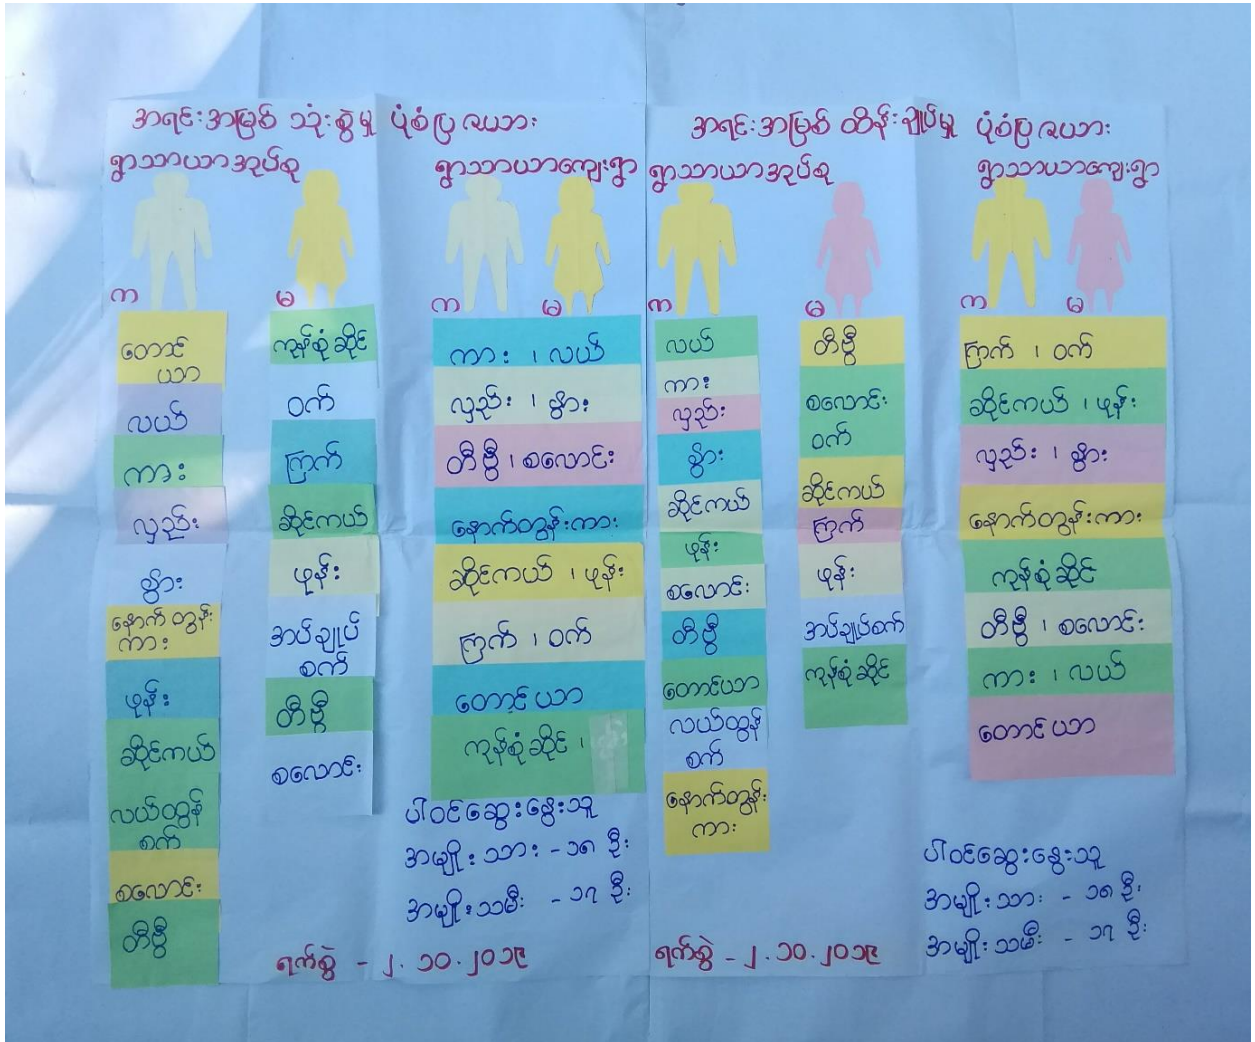 အရင်းအမြစ် သုံးစွဲမှု ပုံစံပြဇယား
ရွာသာယာအုပ်စု
ရွာသာယာကျေးရွာ
က
မ
က
မ
တောင်
ယာ
လယ်
ကား
လှည်း
နွား
နောက်တွန်း
ကား
ဖုန်း
ဆိုင်ကယ်
လယ်ထွန်
စက်
စလောင်း
တီဗွီ
ကုန်စုံဆိုင်
ဝက်
ကြက်
ဆိုင်ကယ်
ဖုန်း
အပ်ချုပ်
စက်
တီဗွီ
စလောင်း
ကား ၊ လယ်
လှည်း ၊ နွား
တီဗွီ ၊ စလောင်း
နောက်တွန်းကား
ဆိုင်ကယ် ၊ ဖုန်း
ကြက် ၊ ဝက်
တောင်ယာ
ကုန်စုံဆိုင် ၊
ပါဝင်ဆွေးနွေးသူ
အမျိုးသား - ၁၈ ဦး
အမျိုးသမီး - ၁၇ ဦး
ရက်စွဲ - ၂.၁၀.၂၀၁၉
အရင်းအမြစ် ထိန်းချုပ်မှု ပုံစံပြဇယား
ရွာသာယာအုပ်စု
ရွာသာယာကျေးရွာ
က
မ
က
မ
လယ်
ကား
လှည်း
နွား
ဆိုင်ကယ်
ဖုန်း
စလောင်း
တီဗွီ
တောင်ယာ
လယ်ထွန်
စက်
နောက်တွန်း
ကား
တီဗွီ
စလောင်း
ဝက်
ဆိုင်ကယ်
ကြက်
ဖုန်း
အပ်ချုပ်စက်
ကုန်စုံဆိုင်
ကြက် ၊ ဝက်
ဆိုင်ကယ် ၊ ဖုန်း
လှည်း ၊ နွား
နောက်တွန်းကား
ကုန်စုံဆိုင်
တီဗွီ ၊ စလောင်း
ကား ၊ လယ်
တောင်ယာ
ပါဝင်ဆွေးနွေးသူ
အမျိုးသား - ၁၈ ဦး
အမျိုးသမီး - ၁၇ ဦး
ရက်စွဲ - ၂.၁၀.၂၀၁၉